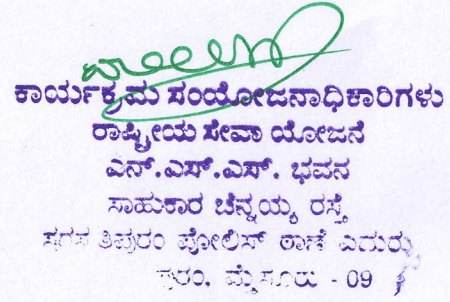 ಕಾರ್ಯಕ್ರಮ ಸಂಯೋಜನಾಧಿಕಾರಿಗಳು
ರಾಷ್ಟ್ರೀಯ ಸೇವಾ ಯೋಜನೆ
ಎನ್.ಎಸ್.ಎಸ್. ಭವನ
ಸಾಹುಕಾರ ಚೆನ್ನಯ್ಯ ರಸ್ತೆ
ಪೋಲಿಸ್ ಠಾಣೆ ಎದುರು
ಪುರಂ. ಮೈಸೂರು - 09